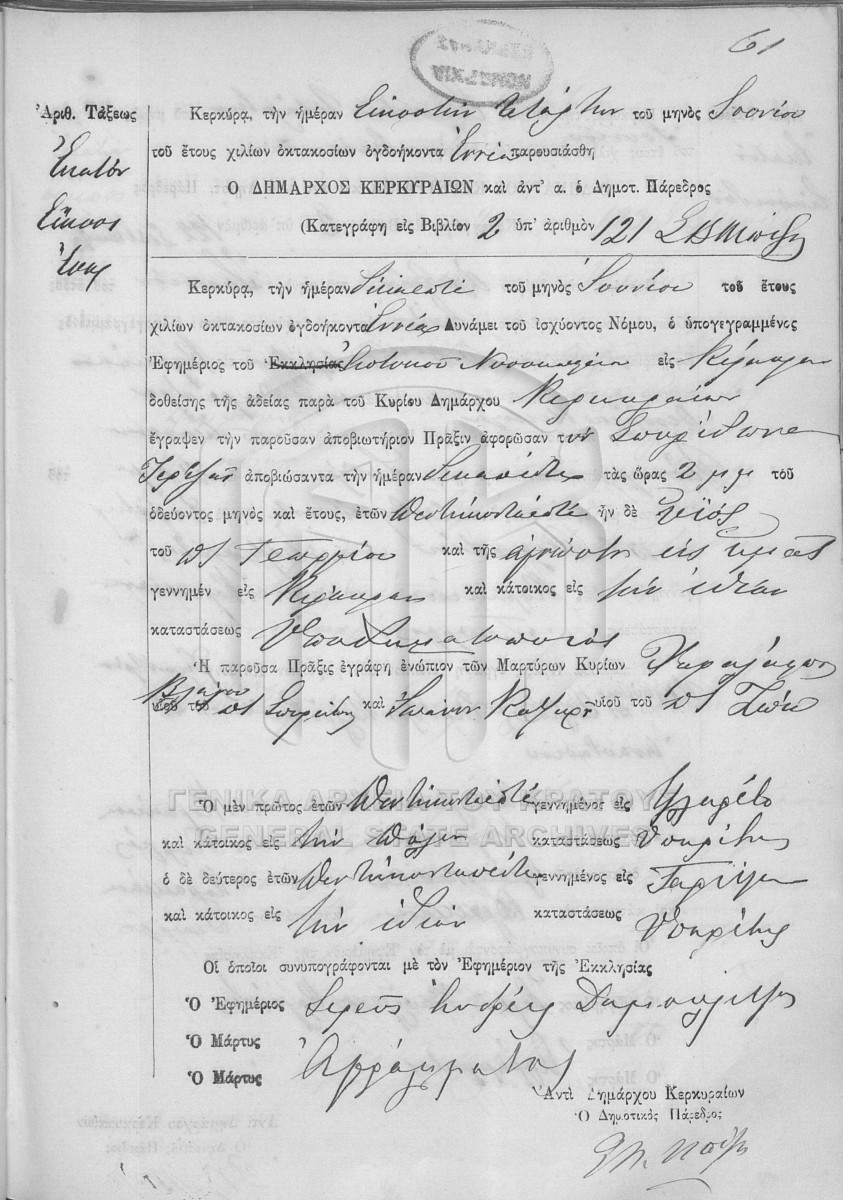 61
Ἀριθ. Τάξεως
Ἑκατὸν
Εἴκοσι
Ἕνα
Κερκύρα, τὴν ἡμέραν Εἰκοστὴν τετάρτην τοῦ μηνὸς Ἰουνίου
τοῦ ἔτους χιλίων ὀκτακοσίων ὀγδοήκοντα Ἐννέα παρουσιάσθη
Ὁ ΔΗΜΑΡΧΟΣ ΚΕΡΚΥΡΑΙΩΝ καὶ ἀντ' α. ὁ Δημοτ. Πάρεδρος
(Κατεγράφη εἰς Βιβλίον 2 ὑπ' ἀριθμὸν 121
Κερκύρα, τὴν ἡμέραν δεκαεπτὰ τοῦ μηνὸς Ἰουνίου τοῦ ἔτους
χιλίων ὀκτακοσίων ὀγδοήκοντα Ἐννέα Δυνάμει τοῦ ἰσχύοντος Νόμου, ὁ ὑπογεγραμμένος
Ἐφημέριος τοῦ Ἐκκλησίας Νοσοκομείου εἰς Κέρκυραν
δοθείσης τῆς ἀδείας παρὰ τοῦ Κυρίου Δημάρχου Κερκυραίων
ἔγραψεν τὴν παροῦσαν ἀποβιωτήριον Πρᾶξιν ἀφορῶσαν τὸν Σπυρίδωνα
ἀποβιώσαντα τὴν ἡμέραν τὰς ὥρας 2 μ μ τοῦ
ὁδεύοντος μηνὸς καὶ ἔτους, ἐτῶν Πεντηκονταεπτὰ ἦν δὲ υἱὸς
τοῦ ποτ Γεωργίου καὶ τῆς ἀγνώστου εἰς ἡμᾶς
γεννημέν εἰς Κέρκυραν καὶ κάτοικος εἰς τὴν ἰδίαν
καταστάσεως Ὑποδηματοποιὸς
Ἡ παροῦσα Πρᾶξις ἐγράφη ἐνώπιον τῶν Μαρτύρων Κυρίων Χαραλάμπου
Βλάχου
υἱοῦ τοῦ ποτ Σπυρίδ καὶ υἱοῦ τοῦ ποτ
Ὁ μὲν πρῶτος ἐτῶν Πεντηκονταεπτὰ γεννημένος εἰς
καὶ κάτοικος εἰς τὴν Πόλιν καταστάσεως Ὑπηρέτης
ὁ δὲ δεύτερος ἐτῶν Πεντηκονταπέντε γεννημένος εἰς
καὶ κάτοικος εἰς τὴν ἰδίαν καταστάσεως Ὑπηρέτης
Οἱ ὁποῖοι συνυπογράφονται μὲ τὸν Ἐφημέριον τῆς Ἐκκλησίας
Ὁ Ἐφημέριος Ἱερεὺς Ἀνδρέας
Ὁ Μάρτυς
Ὁ Μάρτυς Ἀγράμματος
Ἀντὶ Δημάρχου Κερκυραίων
Ὁ Δημοτικὸς Πάρεδρος
ΓΕΝΙΚΑ ΑΡΧΕΙΑ ΤΟΥ ΚΡΑΤΟΥΣ
GENERAL STATE ARCHIVES